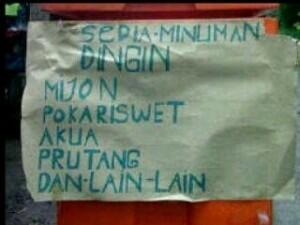 SEDIA-MINUMAN
DINGIN
MIJON
POKARISWET
AKUA
PRUTANG
DAN-LAIN-LAIN